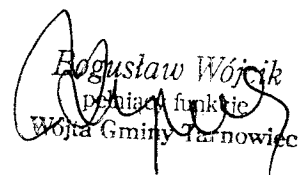 Bogusław Wójcik
pełniący funkcję
Wójta Gminy Tarnowiec